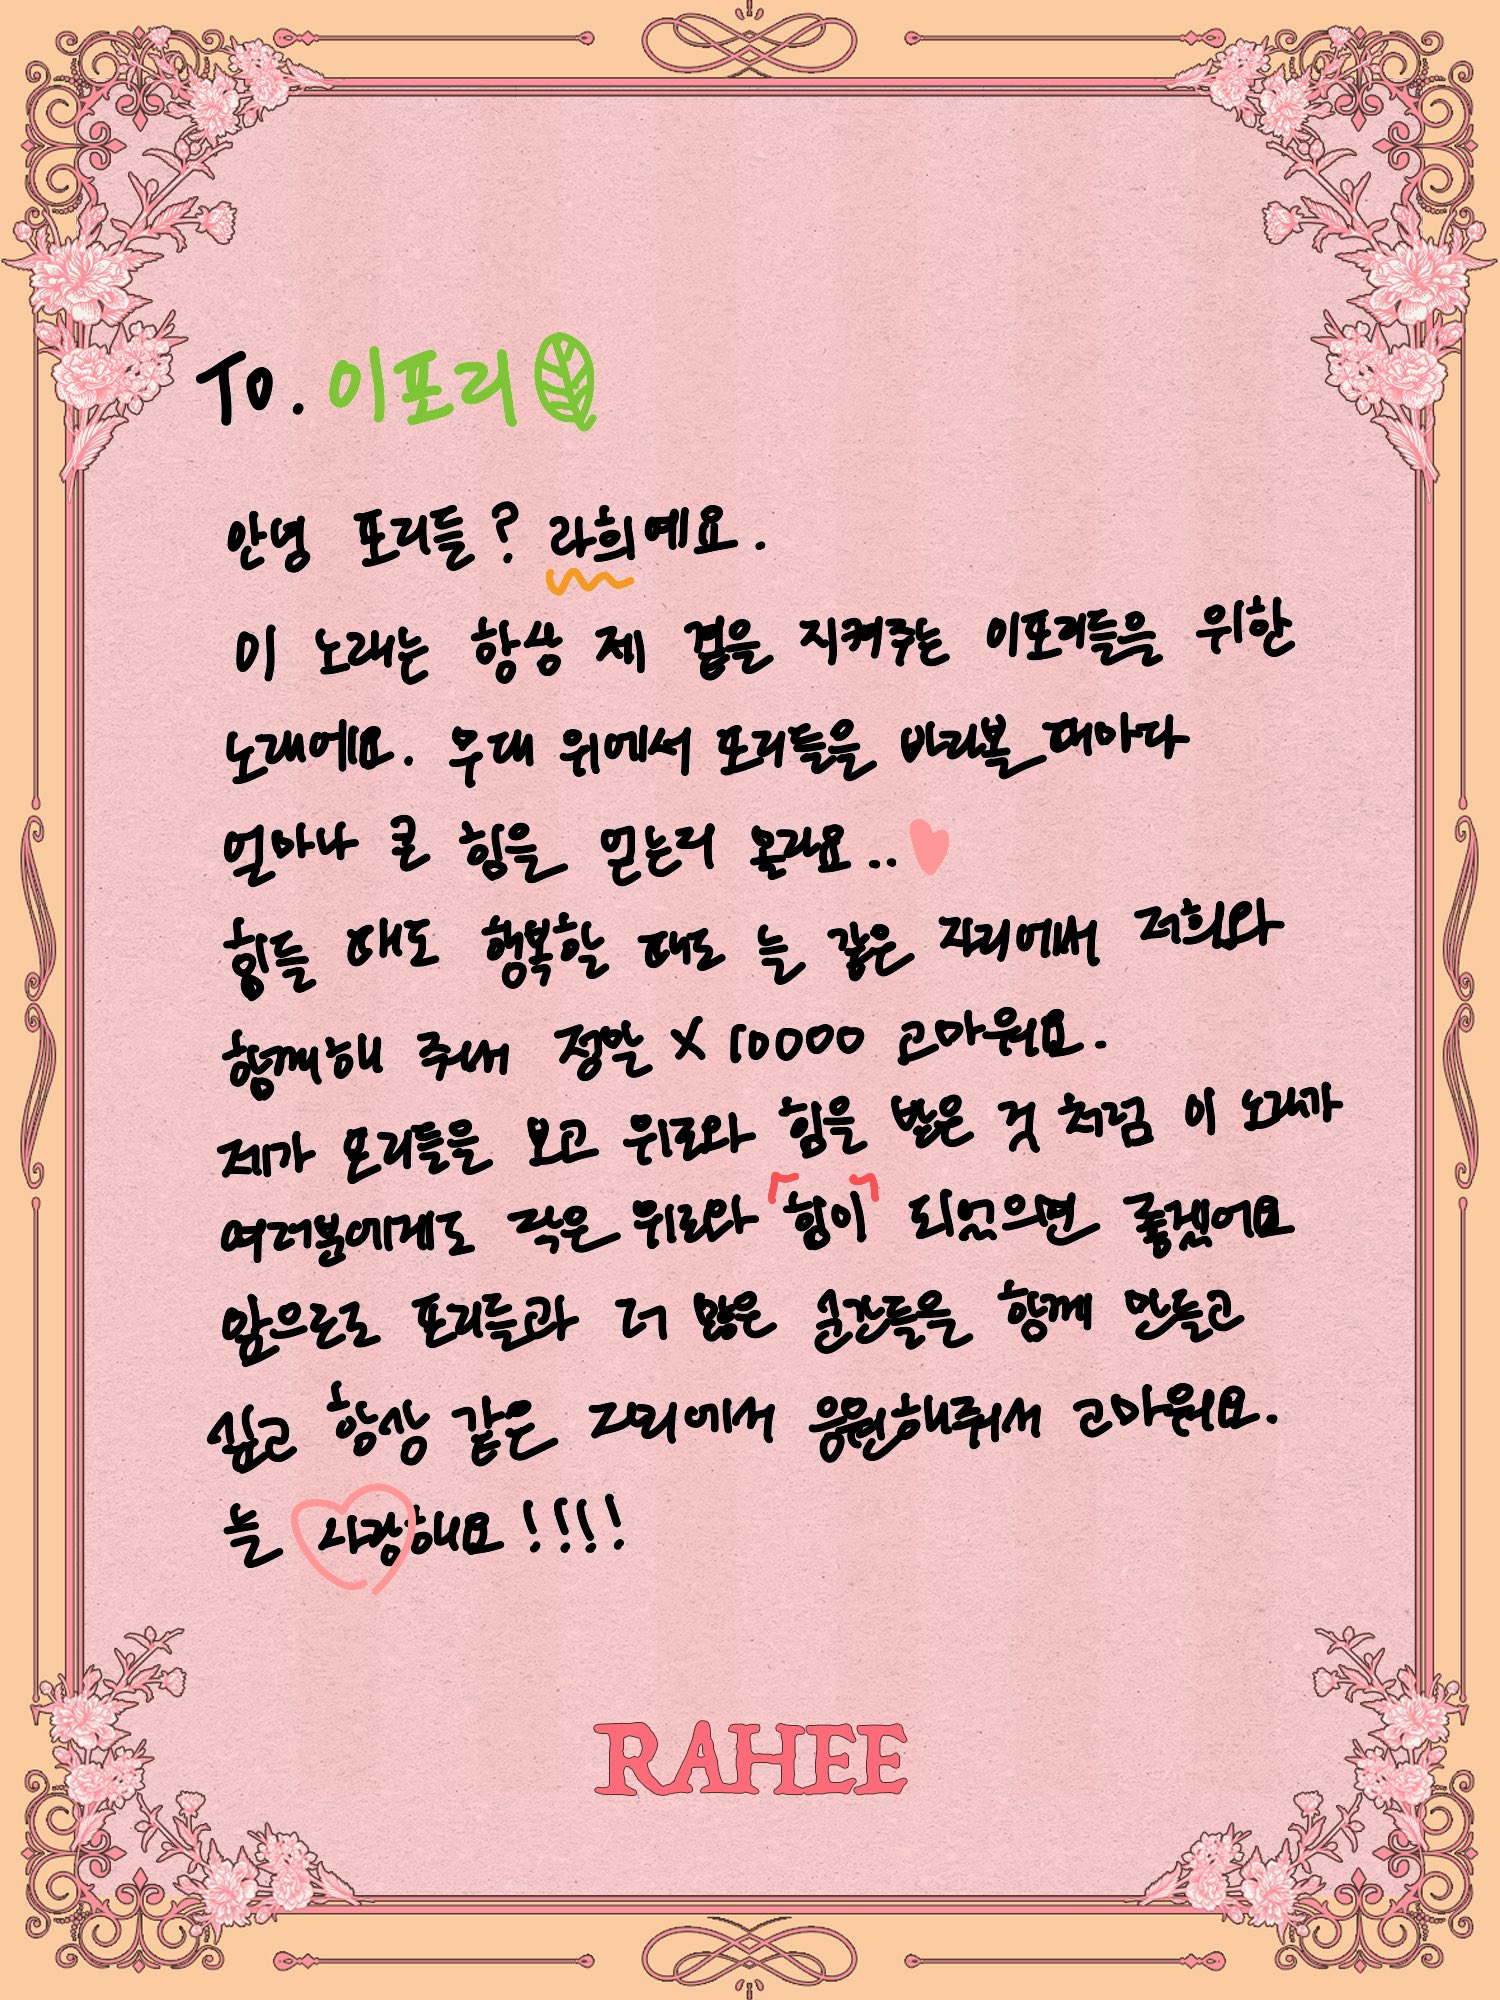 To. 이포리
안녕 포리들? 라희예요.
이 노래는 항상 제 곁을 지켜주는 이포리들을 위한
노래에요. 무대 위에서 포리들을 바라볼 때마다
얼마나 큰 힘을 얻는지 몰라요..
힘들 때도 행복할 때도 늘 같은 자리에서 저희와
함께해 주셔서 정말 X 10000 고마워요.
제가 포리들을 보고 위로와 힘을 받은 것 처럼 이 노래가
여러분에게도 작은 위로와 「힘이」 되었으면 좋겠어요
앞으로도 포리들과 더 많은 순간들을 함께 만들고
싶고 항상 같은 자리에서 응원해줘서 고마워요.
늘 사랑해요!!!!
RAHEE